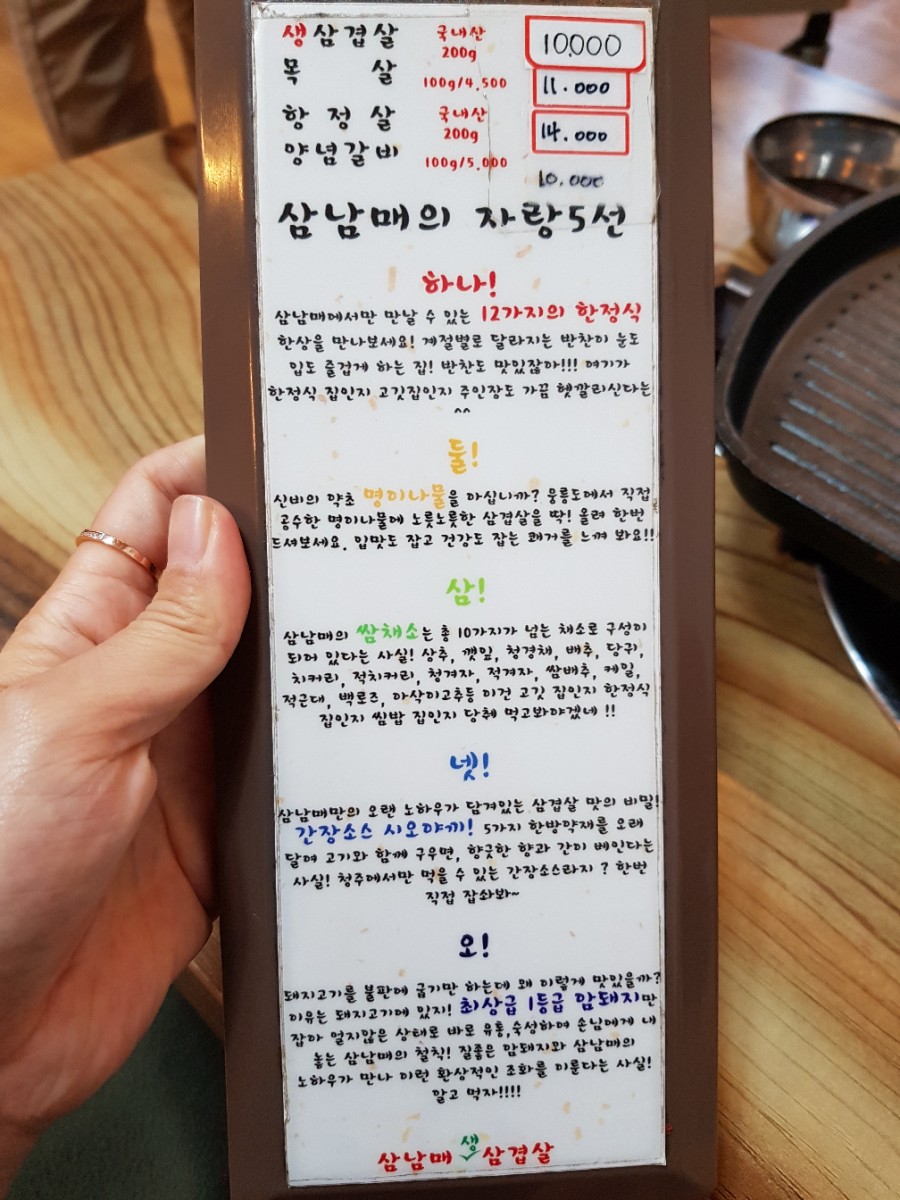 생삼겹살 국내산 10,000
200g
목 살 100g/4,500 11.000
항 정 살 국내산 14.000
200g
양념갈비 100g/5,000
10.000
삼남매의 자랑5선
하나!
삼남매에서만 만날 수 있는 12가지의 한정식
한상을 만나보세요! 계절별로 달라지는 반찬이 눈도
입도 즐겁게 하는 집! 반찬도 맛있잖아!!! 여기가
한정식 집인지 고깃집인지 주인장도 가끔 헷깔리신다는
^^
둘!
신비의 약초 명이나물을 아십니까? 울릉도에서 직접
공수한 명이나물에 노릇노릇한 삼겹살을 딱! 올려 한번
드셔보세요. 입맛도 잡고 건강도 잡는 쾌거를 느껴 봐요!!
삼!
삼남매의 쌈채소는 총 10가지가 넘는 채소로 구성이
되어 있다는 사실! 상추, 깻잎, 청경채, 배추, 당귀,
치커리, 적치커리, 청겨자, 적겨자, 쌈배추, 케일,
적근대, 백로즈, 아삭이고추등 이건 고깃 집인지 한정식
집인지 쌈밥 집인지 당췌 먹고봐야겠네 !!
넷!
삼남매만의 오랜 노하우가 담겨있는 삼겹살 맛의 비밀!
간장소스 시오야끼! 5가지 한방약재를 오래
달여 고기와 함께 구우면, 향긋한 향과 간이 베인다는
사실! 청주에서만 먹을 수 있는 간장소스라지 ? 한번
직접 잡솨봐~
오!
돼지고기를 불판에 굽기만 하는데 왜 이렇게 맛있을까?
이유는 돼지고기에 있지! 최상급 1등급 암돼지만
잡아 얼지않은 상태로 바로 유통,숙성하여 손님에게 내
놓는 삼남매의 철칙! 질좋은 암돼지와 삼남매의
노하우가 만나 이런 환상적인 조화를 이룬다는 사실!
알고 먹자!!!!
삼남매 생 삼겹살